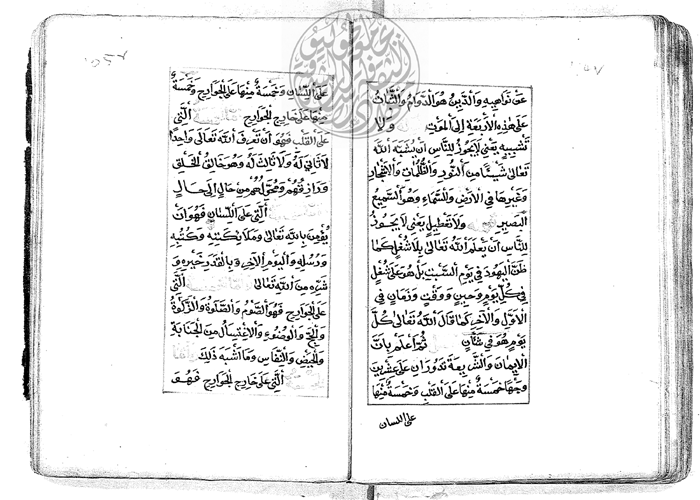 عن نواهيه والدين هو الدوام والثبات
على هذه الاربعة الى الموت ولا
تشبيه يعنى لا يجوذ للناس ان يشبه الله
تعالى شيئا من النور والظلمات والاشجار
وغيرها في الارض والسماء وهو السميع
البصير ولا تعطيل يعنى لا يجوذ
للناس ان يعلم الله تعالى بلا شغل كما
ظن اليهود في يوم السبت بل هو على شغل
في كل يوم وحين ووقت وزمان في
الاول والاخر كما قال الله تعالى كل
يوم هو في شان ثم اعلم بان
الايمان والشريعة تدوران على عشرين
وجها خمسة منها على القلب وخمسة منها
على اللسان
على اللسان وخمسة منها على الجوارح وخمسة
منها على خارج الجوارح التى
على القلب فهو ان تعرف الله تعالى واحدا
لا ثانى له ولا ثالث له وهو خالق الخلق
ورازقهم ومحولهم من حال الى حال
التى على اللسان فهو ان
يؤمن بالله تعالى وملائكته وكتبه
ورسله واليوم الاخر وبالقدر خيره و
شره من الله تعالى التى
على الجوارح فهو الصوم والصلوة والزكوة
والحج والوضوء والاغتسال من الجنابة
والحيض والنفاس وما اشبه ذلك
التى على خارج الجوارح فهو